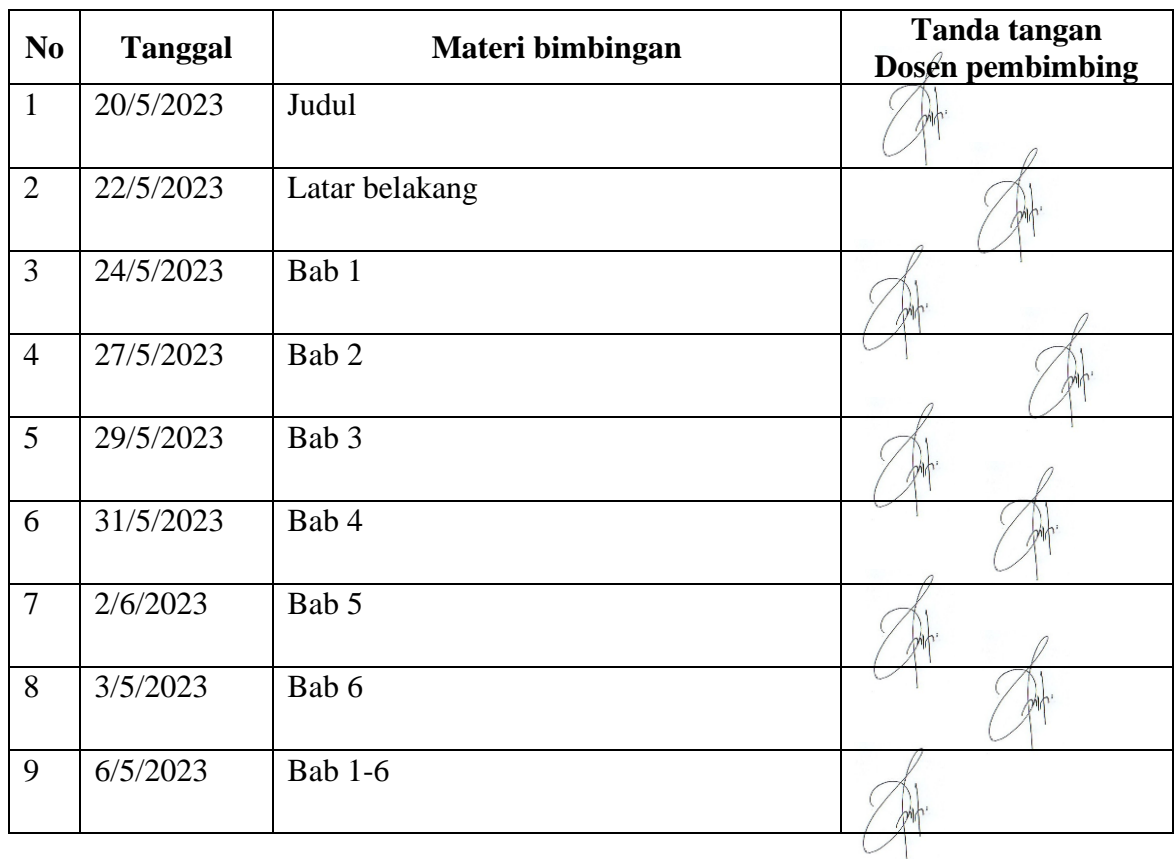 No Tanggal Materi bimbingan Tanda tangan
Dosen pembimbing
1 20/5/2023 Judul
2 22/5/2023 Latar belakang
3 24/5/2023 Bab 1
4 27/5/2023 Bab 2
5 29/5/2023 Bab 3
6 31/5/2023 Bab 4
7 2/6/2023 Bab 5
8 3/5/2023 Bab 6
9 6/5/2023 Bab 1-6